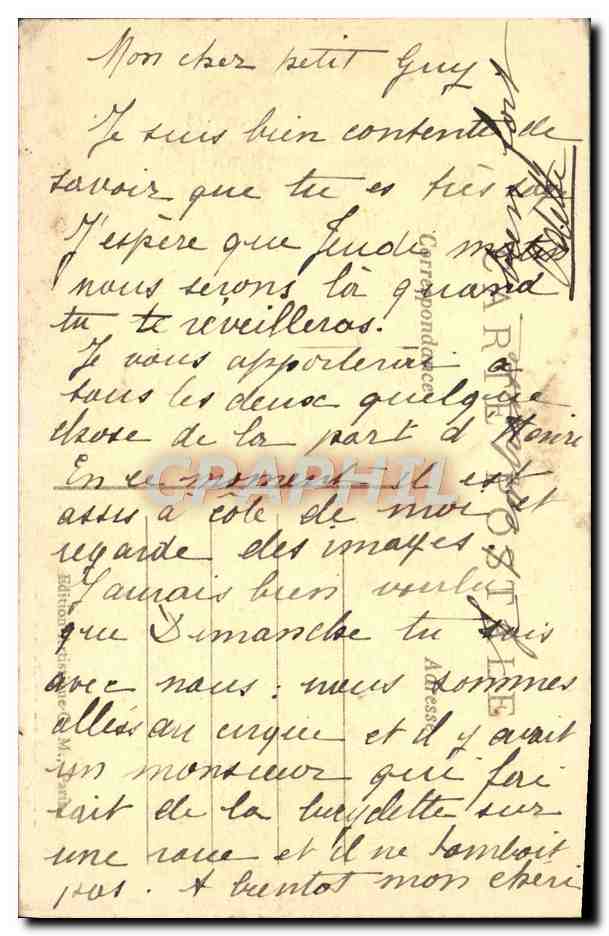 Mon cher petit Guy
Je suis bien contente de
savoir que tu es très sage
J'espère que Jeudi matin
nous serons là quand
tu te réveilleras.
Je vous apporterai à
tous les deux quelque
chose de la part d'Henri
En ce moment il est
assis à côté de moi et
regarde des images.
J'aurais bien voulu
que Dimanche tu sois
avec nous : nous sommes
allés au cirque et il y avait
un monsieur qui fai
sait de la bicyclette sur
une roue et il ne tombait
pas. A bientot mon chéri
CARTE POSTALE
Correspondance
Adresse
CPRAPHIL